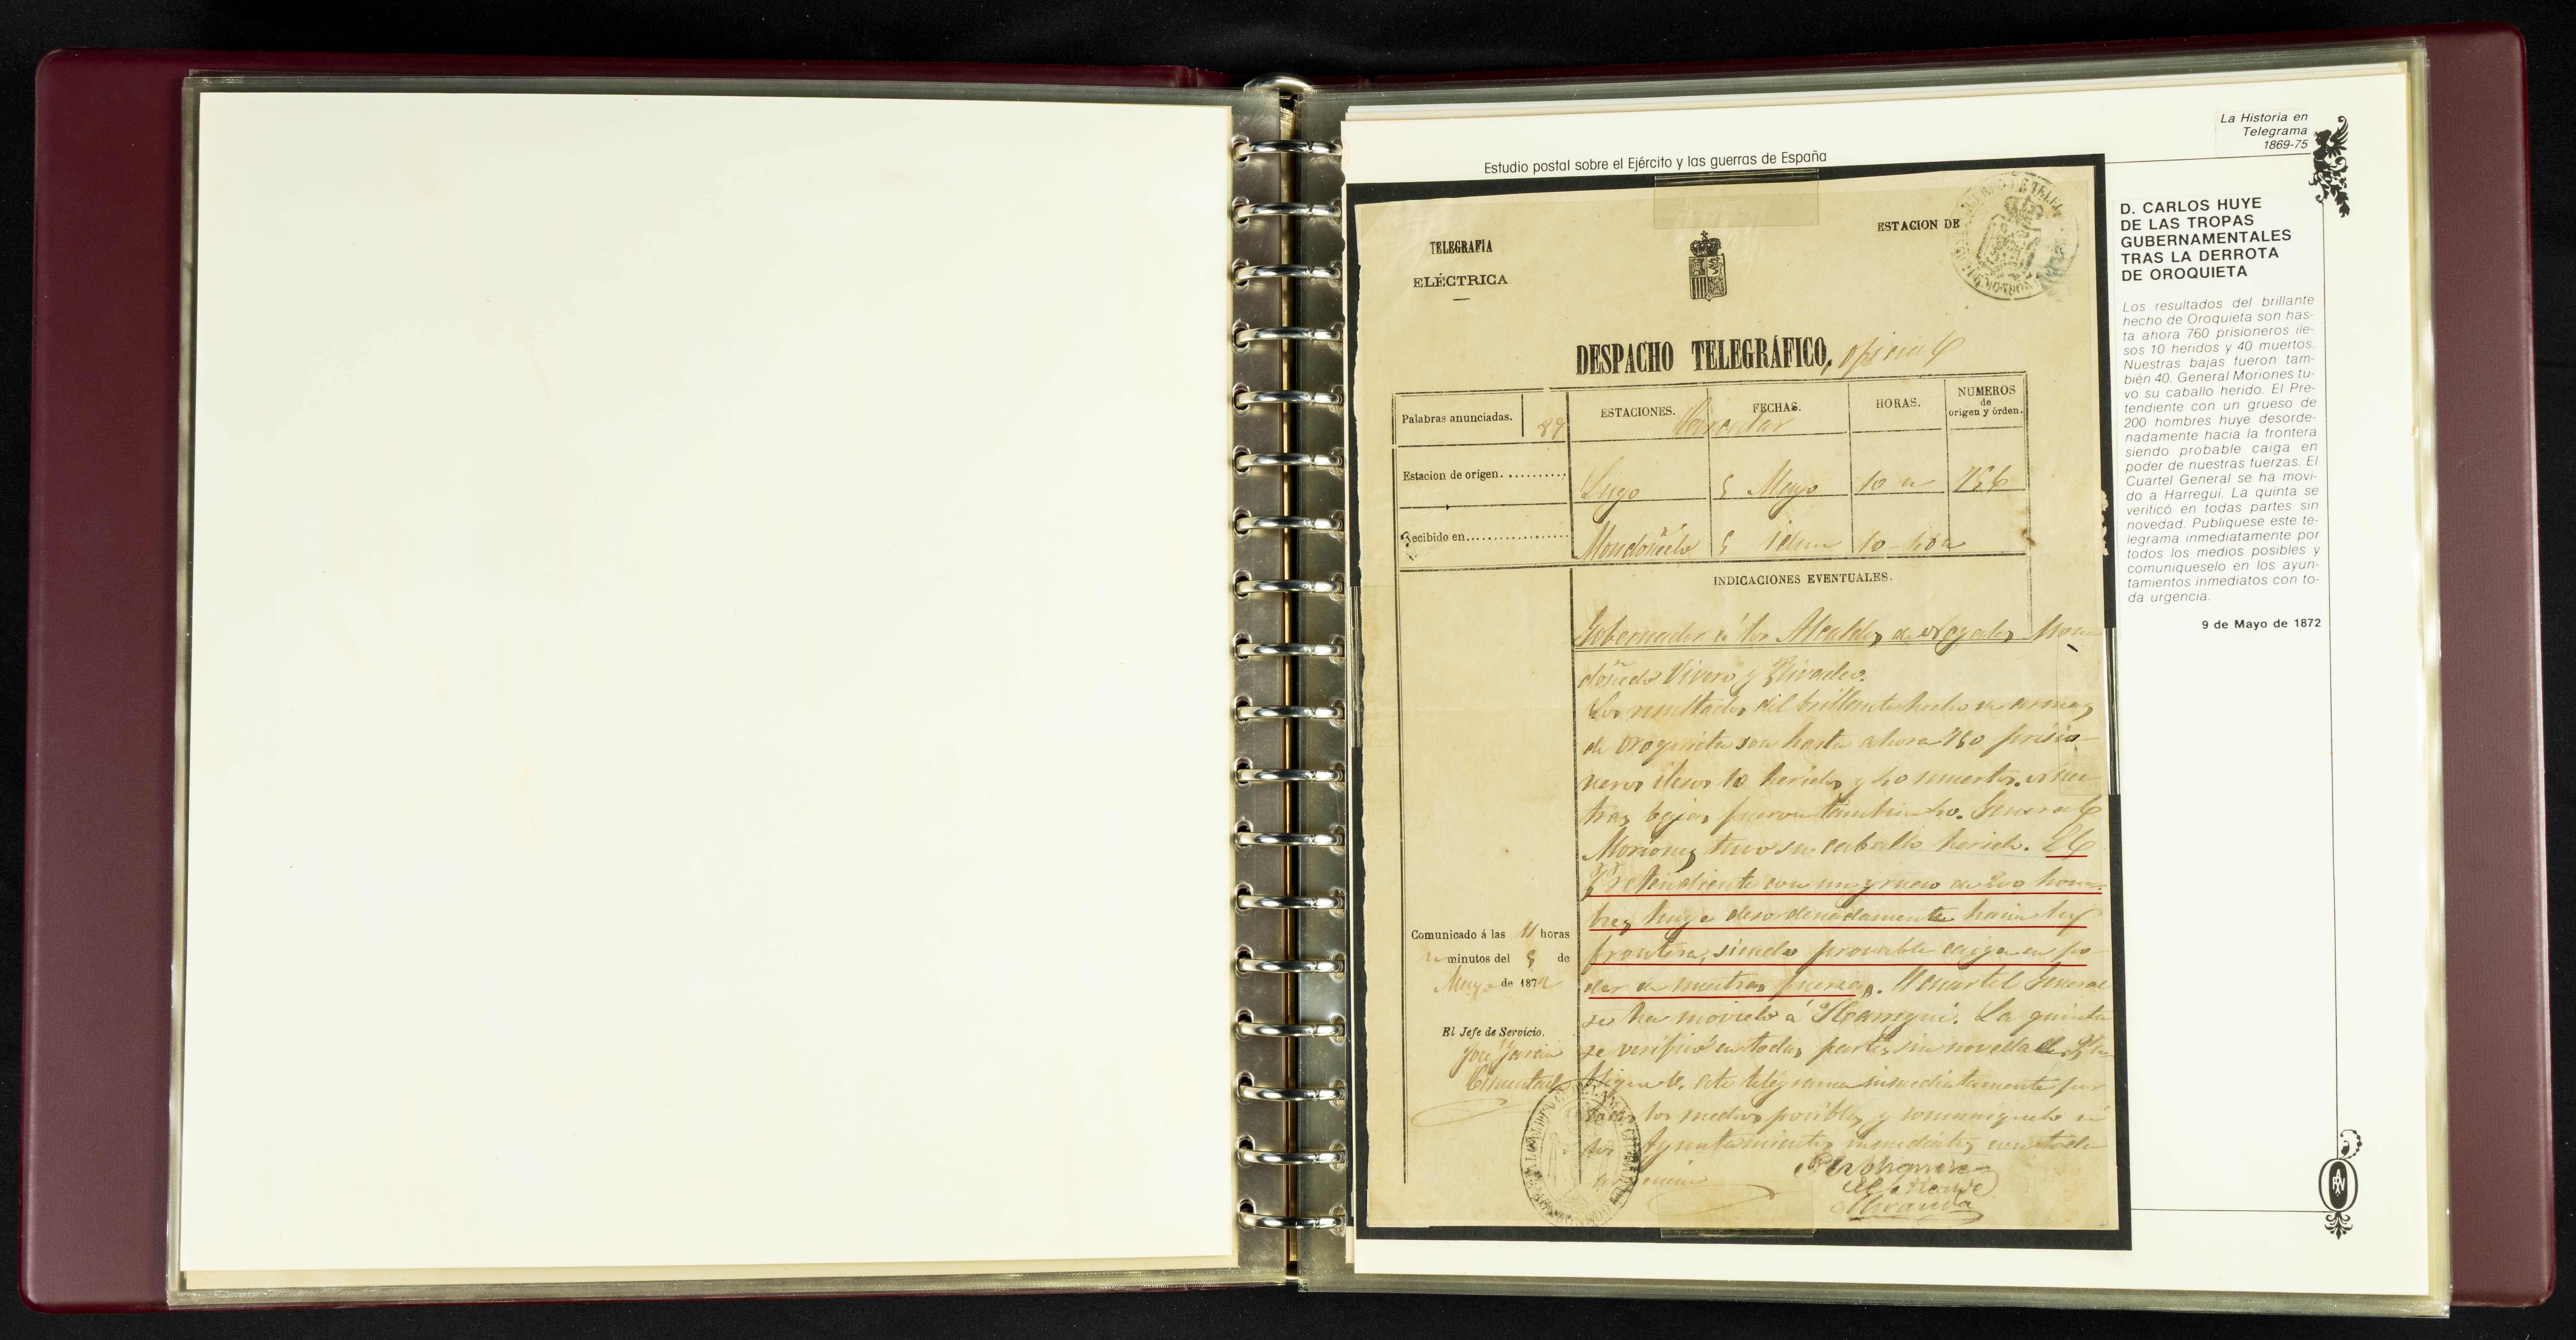 La Historia en
Telegrama
1869-75
Estudio postal sobre el Ejército y las guerras de España
TELEGRAFIA
ELÉCTRICA
ESTACION DE
DESPACHO TELEGRÁFICO, oficial
Palabras anunciadas. 89
ESTACIONES. FECHAS. HORAS. NUMEROS
de
origen y órden.
Circular
Estacion de orígen. Lugo 9 Mayo 10 n
Recibido en Mondoñedo 9 idem
INDICACIONES EVENTUALES.
Gobernador á los Alcaldes de Nogales Mon
doñedo Vivero y Rivadeo.
Los resultados del brillante hecho de armas
de Oroquieta son hasta ahora 760 prisio
neros ilesos 10 heridos y 40 muertos. Nues
tras bajas fueron tambien 40. General
Moriones tuvo su caballo herido. El
Pretendiente con un grueso de 200 hom-
bres huye desordenadamente hacia la
frontera, siendo provable caiga en po-
der de nuestras fuerzas. El cuartel General
se ha movido á Harregui. La quinta
se verificó en todas partes sin novedad. Pu
bliquese este telégrama inmediatamente por
todos los medios posibles y comuniquelo á
los Ayuntamientos inmediatos con toda
urgencia
Publiquese
El Alcalde
Miranda
Comunicado á las 11 horas
minutos del 9 de
Mayo de 1872
El Jefe de Servicio.
José Garcia
D. CARLOS HUYE
DE LAS TROPAS
GUBERNAMENTALES
TRAS LA DERROTA
DE OROQUIETA
Los resultados del brillante
hecho de Oroquieta son has-
ta ahora 760 prisioneros ile-
sos 10 heridos y 40 muertos.
Nuestras bajas fueron tam-
bién 40. General Moriones tu-
vo su caballo herido. El Pre-
tendiente con un grueso de
200 hombres huye desorde-
nadamente hacia la frontera
siendo probable caiga en
poder de nuestras fuerzas. El
Cuartel General se ha movi-
do a Harregui. La quinta se
verificó en todas partes sin
novedad. Publiquese este te-
legrama inmediatamente por
todos los medios posibles y
comuniqueselo en los ayun-
tamientos inmediatos con to-
da urgencia.
9 de Mayo de 1872